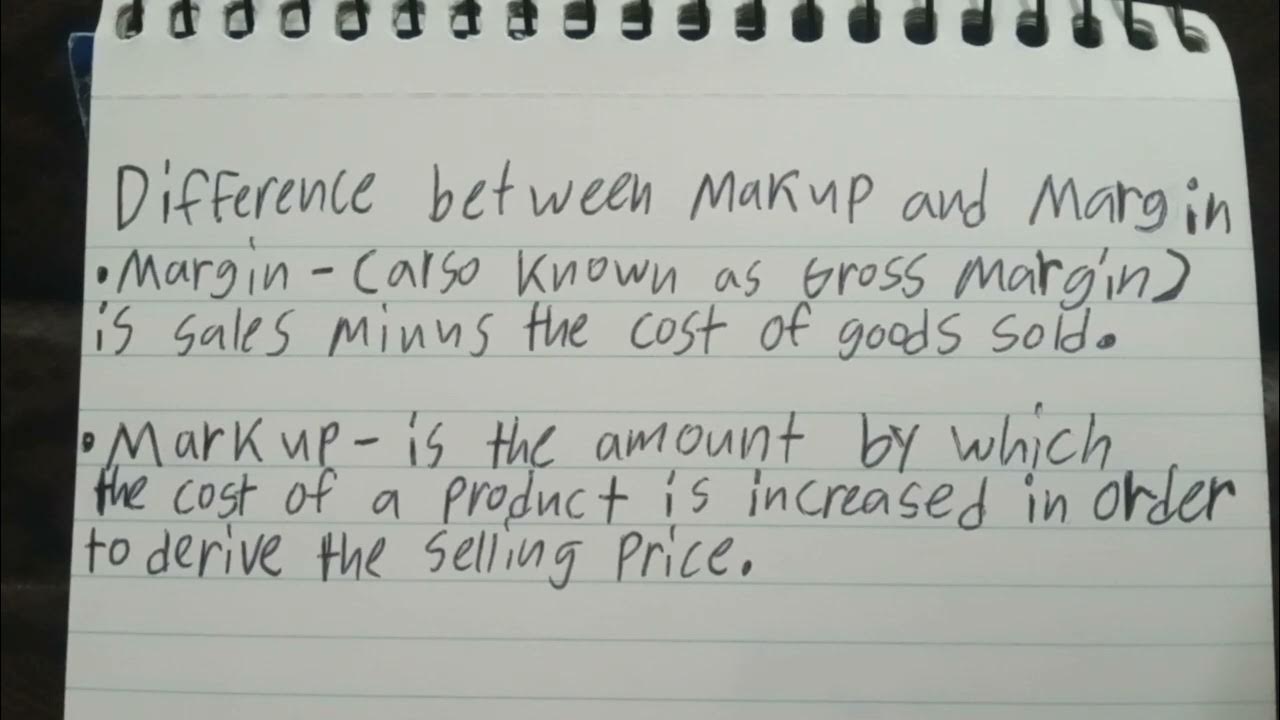 Difference between Makup and Margin
• Margin - (also known as Gross Margin)
is sales minus the cost of goods sold.
• Markup - is the amount by which
the cost of a product is increased in order
to derive the selling price.